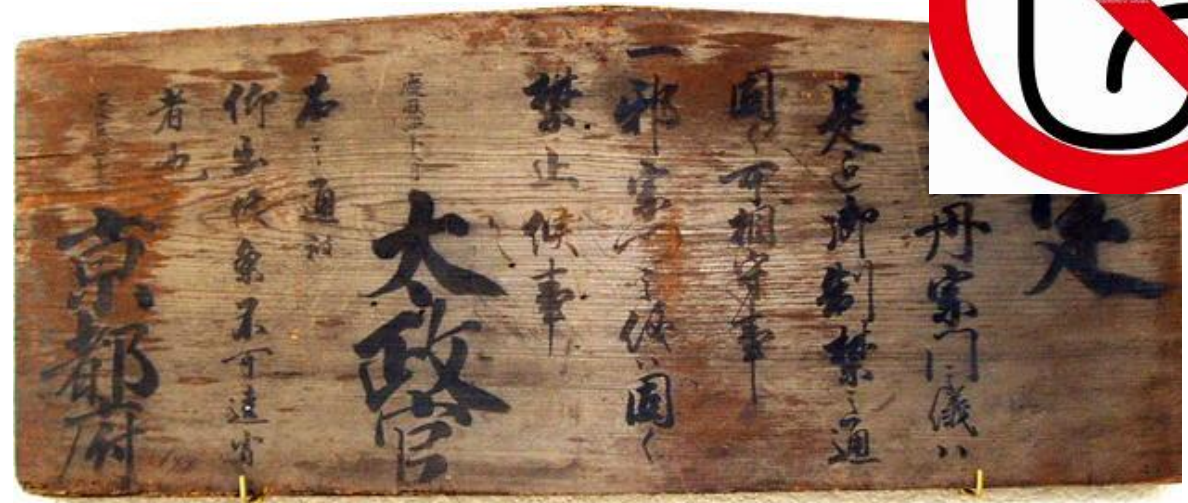 定
丹宗門之儀ハ
是迄御制禁之通
固く可相守事
一邪宗門之儀ハ固く
禁止候事
太政官
右之通被
仰出候条不可違背
者也
京都府